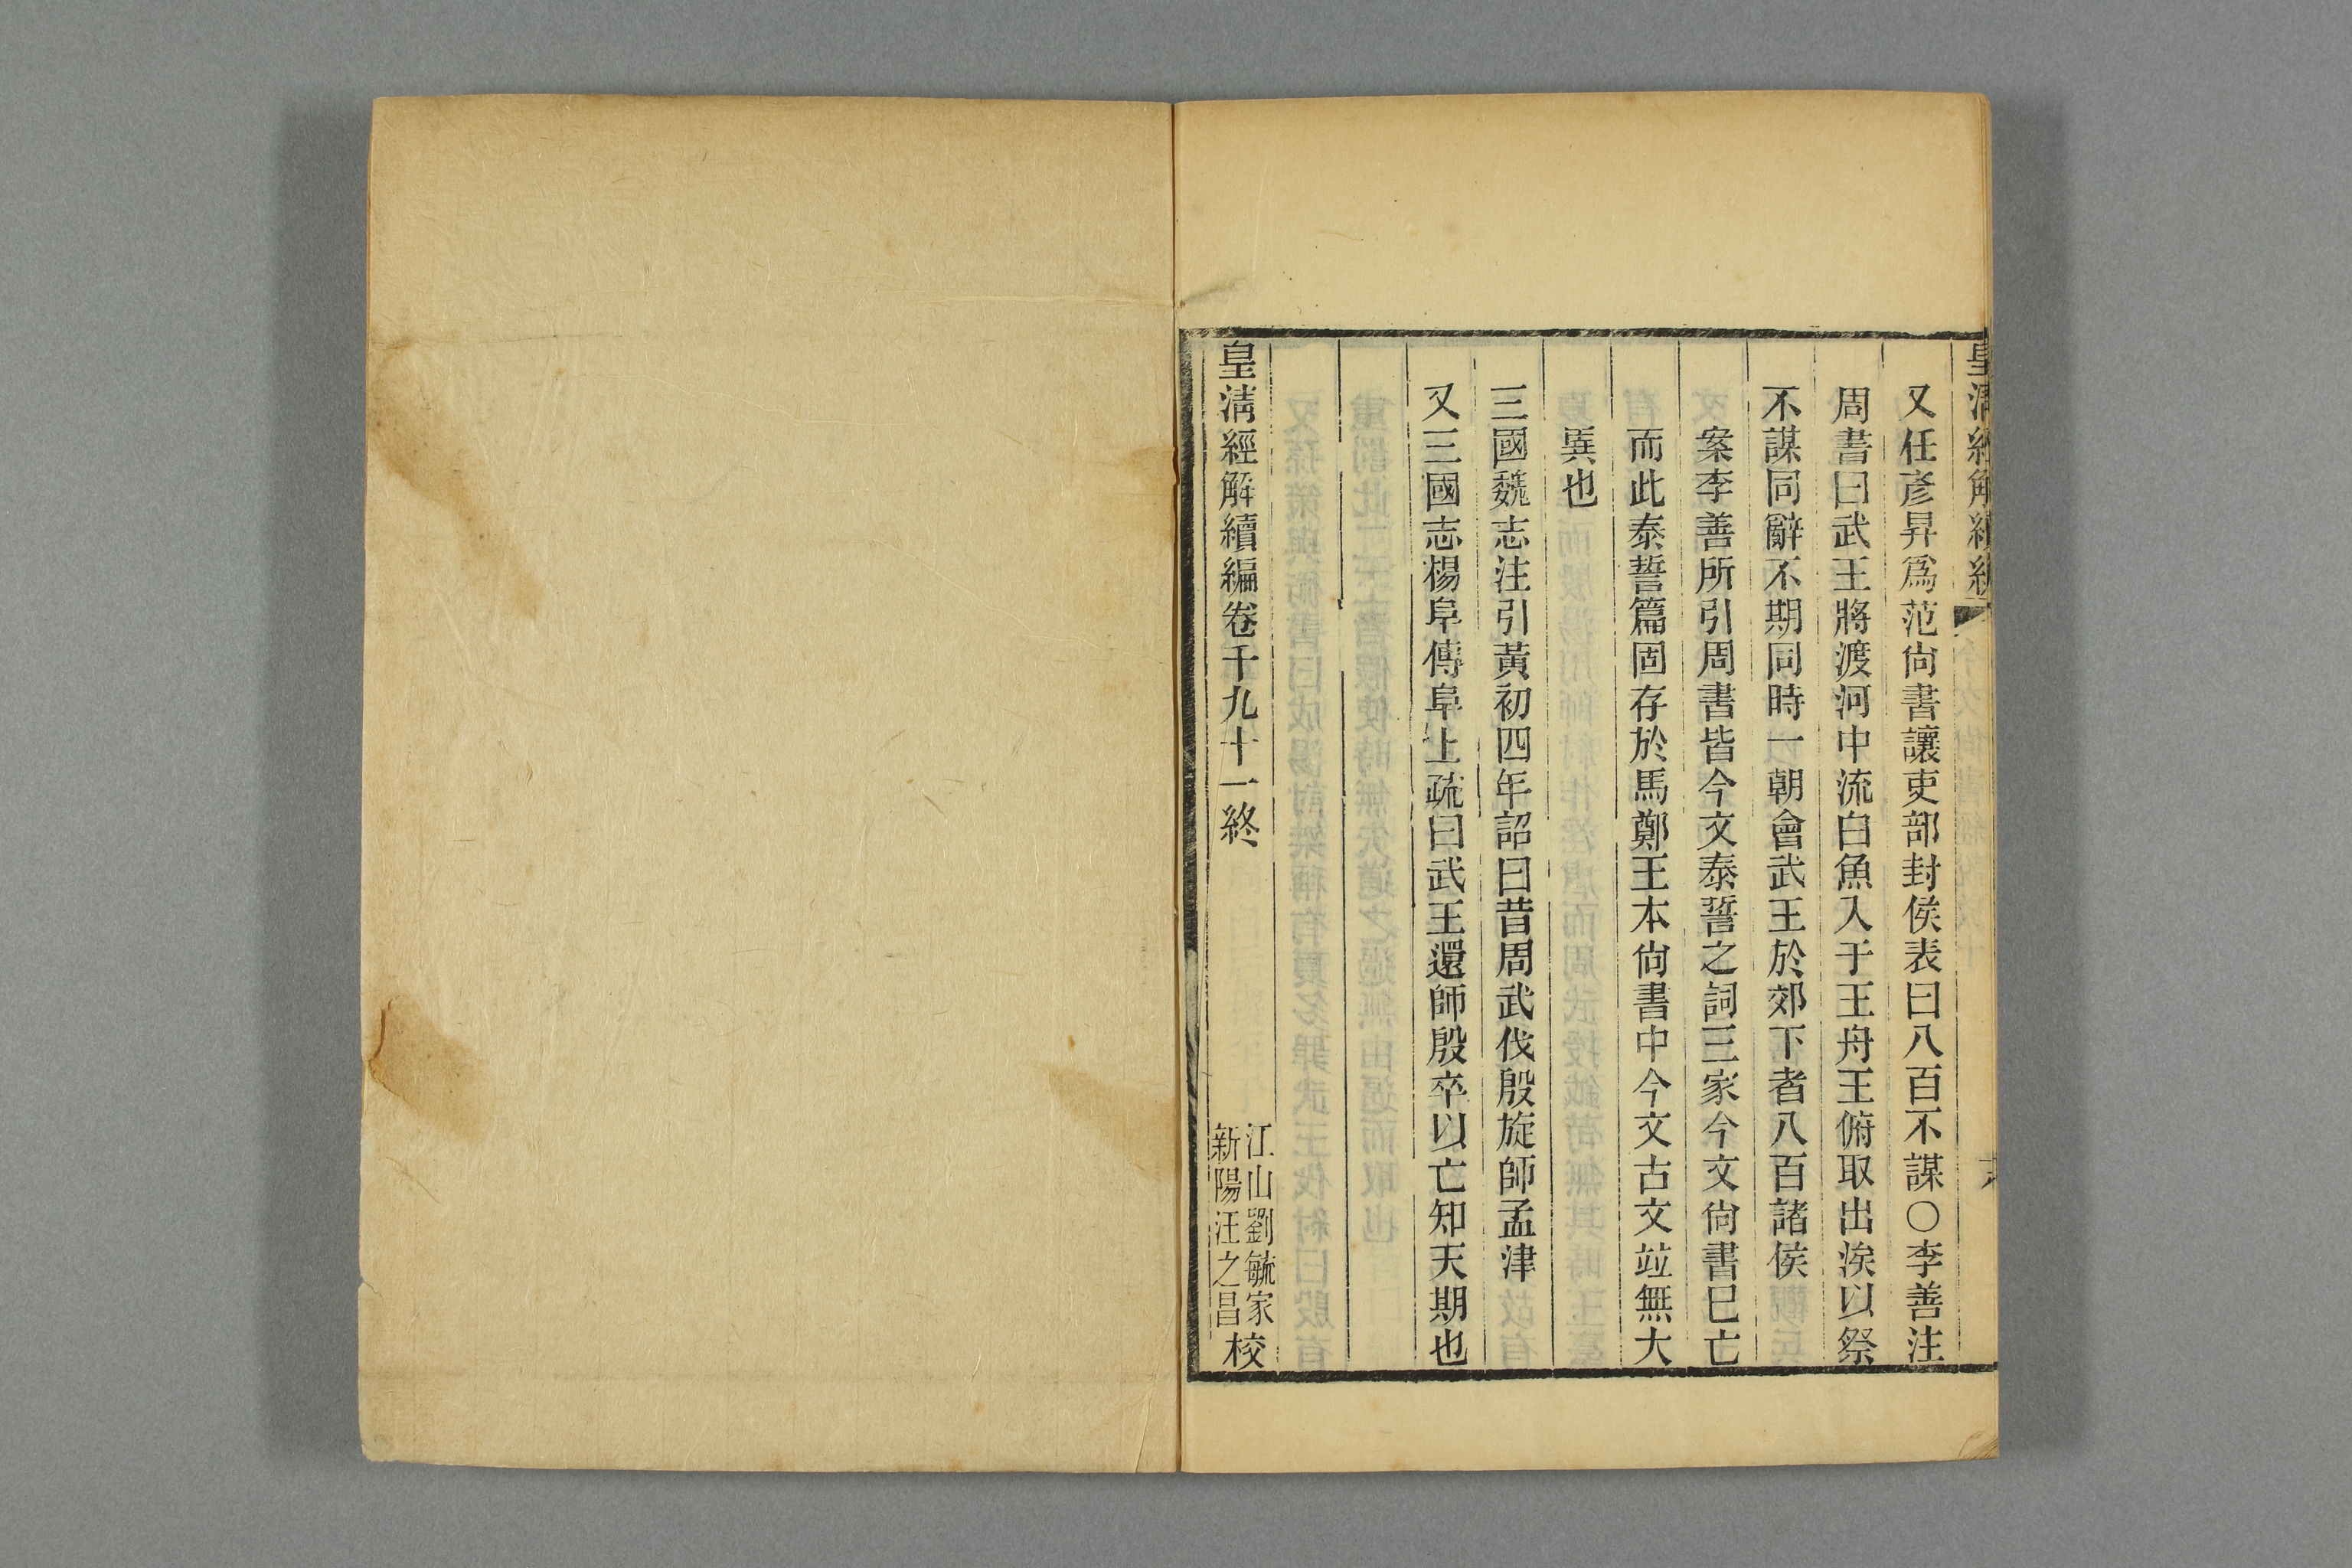 皇清經解續編
又任彥昇爲范尙書讓吏部封侯表曰八百不謀○李善注
周書曰武王將渡河中流白魚入于王舟王俯取出涘以祭
不謀同辭不期同時一朝會武王於郊下者八百諸侯
案李善所引周書皆今文泰誓之詞三家今文尙書已亡
而此泰誓篇固存於馬鄭王本尙書中今文古文竝無大
異也
三國魏志注引黃初四年詔曰昔周武伐殷旋師孟津
又三國志楊阜傳阜上疏曰武王還師殷卒以亡知天期也
皇清經解續編卷千九十一終
江山劉毓家
新陽汪之昌
校